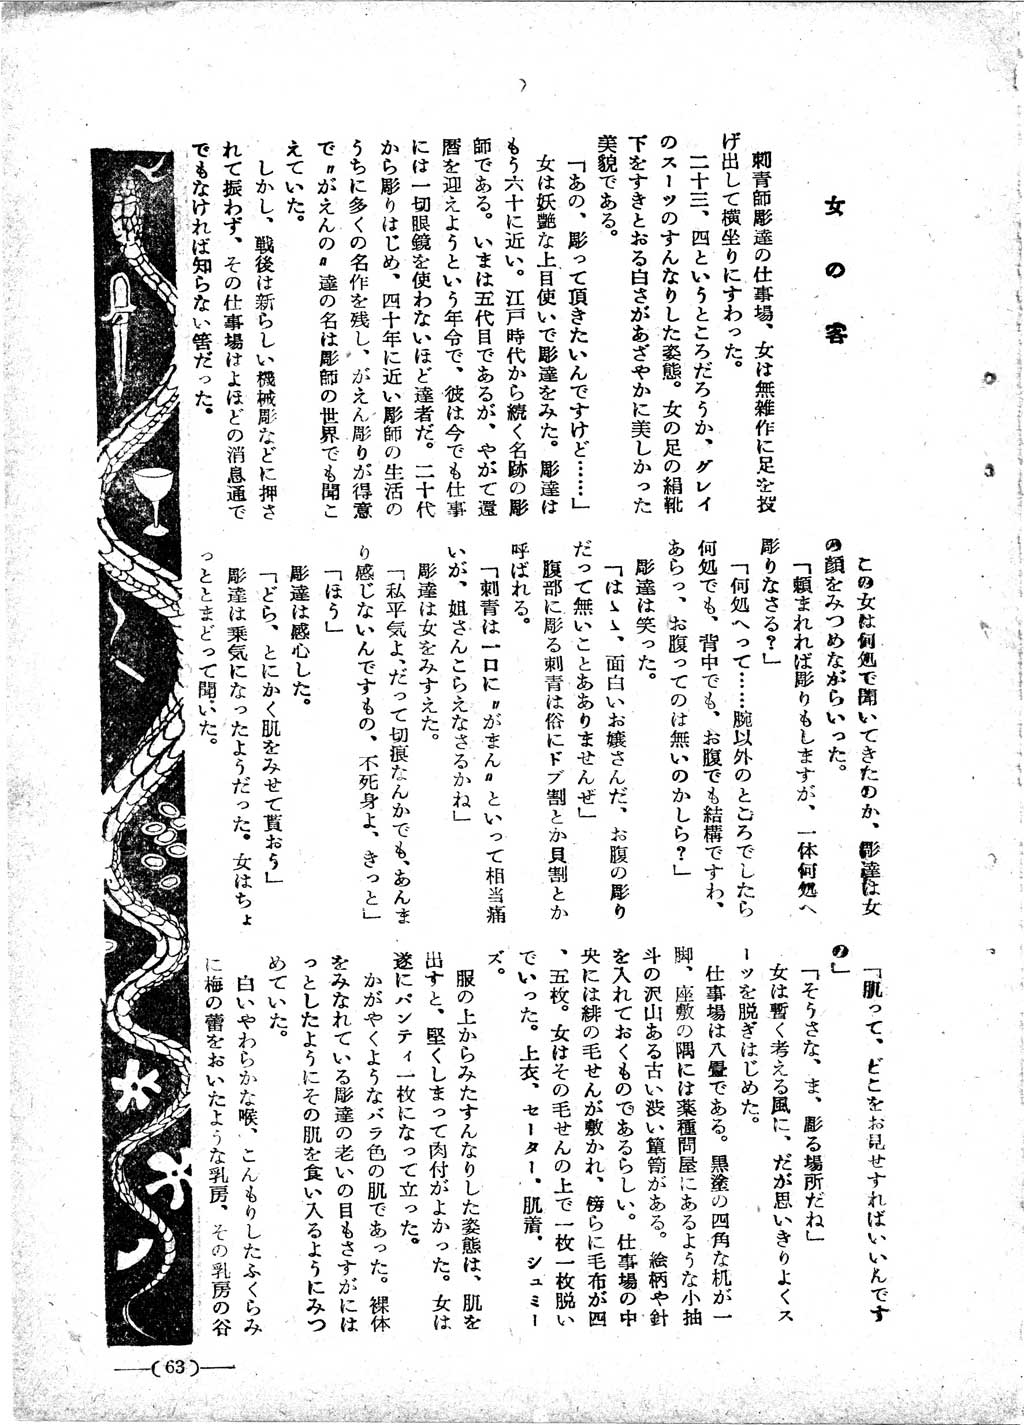 女の客
刺青師彫達の仕事場、女は無雑作に足を投
げ出して横坐りにすわった。
二十三、四というところだろうか、グレイ
のスーツのすんなりした姿態。女の足の絹靴
下をすきとおる白さがあざやかに美しかった
美貌である。
「あの、彫って頂きたいんですけど……」
女は妖艶な上目使いで彫達をみた。彫達は
もう六十に近い。江戸時代から続く名跡の彫
師である。いまは五代目であるが、やがて還
暦を迎えようという年令で、彼は今でも仕事
には一切眼鏡を使わないほど達者だ。二十代
から彫りはじめ、四十年に近い彫師の生活の
うちに多くの名作を残し、がえん彫りが得意
で〃がえんの〃達の名は彫師の世界でも聞こ
えていた。
しかし、戦後は新らしい機械彫などに押さ
れて振わず、その仕事場はよほどの消息通で
でもなければ知らない筈だった。
この女は何処で聞いてきたのか、彫達は女
の顔をみつめながらいった。
「頼まれれば彫りもしますが、一体何処へ
彫りなさる？」
「何処へって……腕以外のところでしたら
何処でも、背中でも、お腹でも結構ですわ、
あらっ、お腹ってのは無いのかしら？」
彫達は笑った。
「はゝゝ、面白いお嬢さんだ、お腹の彫り
だって無いことありませんぜ」
腹部に彫る刺青は俗にドブ割とか貝割とか
呼ばれる。
「刺青は一口に〃がまん〃といって相当痛
いが、姐さんこらえなさるかね」
彫達は女をみすえた。
「私平気よ、だって切痕なんかでも、あんま
り感じないんですもの、不死身よ、きっと」
「ほう」
彫達は感心した。
「どら、とにかく肌をみせて貰おう」
彫達は乗気になったようだった。女はちょ
っととまどって聞いた。
「肌って、どこをお見せすればいいんです
の」
「そうさな、ま、彫る場所だね」
女は暫く考える風に、だが思いきりよくス
ーツを脱ぎはじめた。
仕事場は八畳である。黒塗の四角な机が一
脚、座敷の隅には薬種問屋にあるような小抽
斗の沢山ある古い渋い簞笥がある。絵柄や針
を入れておくものであるらしい。仕事場の中
央には緋の毛せんが敷かれ、傍らに毛布が四
、五枚。女はその毛せんの上で一枚一枚脱い
でいった。上衣、セーター、肌着、シュミー
ズ。
服の上からみたすんなりした姿態は、肌を
出すと、堅くしまって肉付がよかった。女は
遂にパンティ一枚になって立った。
かがやくようなバラ色の肌であった。裸体
をみなれている彫達の老いの目もさすがには
っとしたようにその肌を食い入るようにみつ
めていた。
白いやわらかな喉、こんもりしたふくらみ
に梅の蕾をおいたような乳房、その乳房の谷
(63)